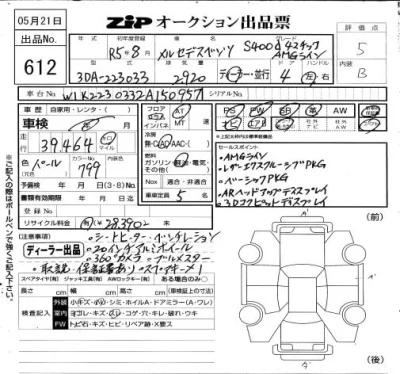 05月21日
ZIP オークション出品票
出品No.
612
年式 初年度登録 車名 グレード
R5年8月 メルセデスベンツ S400d 4マチック
AMGライン
型式 排気量
3DA-223033 2920 ディーラー・並行 4 左 右
評価点
5
内装
B
車台No. W1K2230332A150957 シリアルNo.
車歴 自家用・レンタ・( )
車検
走行 39,464 キロ マイル
フロア AT
コラム インパネ MT
冷房 無・C AC AAC・( )
燃料
ガソリン・軽油・電気・
その他( )
色 パール カラーNo. 799
予備検 年 月 日 (3・8) No.
Nox 適合・非適合
車歴定員 5 名
登録No.
リサイクル料金 (有) ¥28,390
PS PW SR 革 AW
※上記〇以外は標準装備品
セールスポイント
・AMGライン
・レザーエクスクルーシブPKG
・ベーシックPKG
・ARヘッドアップディスプレイ
・3Dコクピットディスプレイ
ディーラー出品
・シートヒーター・ベンチレーション
・20インチアルミホイール
・360°カメラ・ブルメスター
・取説・保証書あり・スペアキー×1
スペアタイヤ(有) ジャッキ工具(有) AWロックキー(有) ある場合のみ〇
長さ cm 幅 cm 高さ cm (車検証記入の寸法)
検査記入
外装 小キズ・凹・シミ・ホイルA・ドアミラー(A・ワレ)
室内 ヨゴレ・キズ・スレ・コゲ・穴・キレ・破れ・ウキ
FW トビ石・キズ・ヒビ・リペア跡・X要ス
※ご記入の際はボールペンで強くご記入下さい。
(前)
(後)